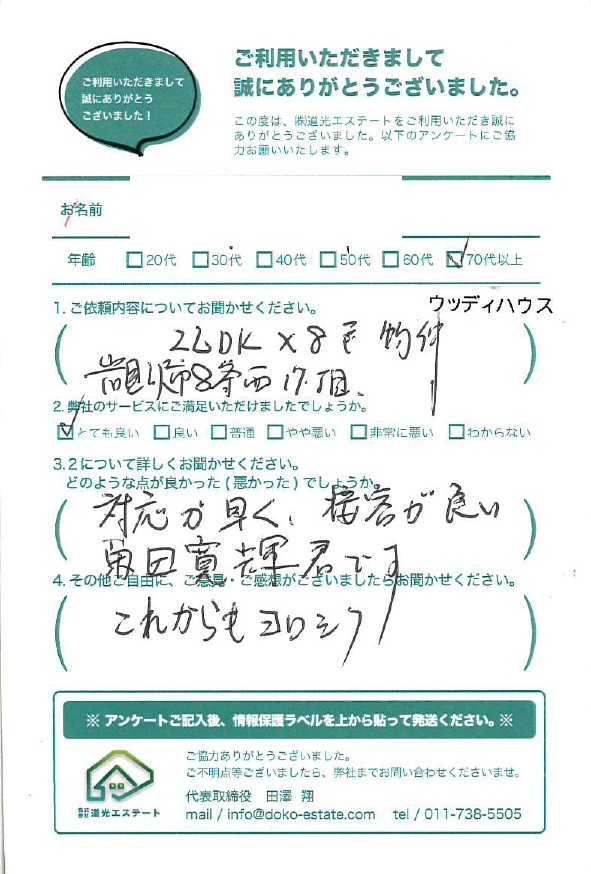 ご利用いただきまして
誠にありがとう
ございました！
ご利用いただきまして
誠にありがとうございました。
この度は、㈱道光エステートをご利用いただき誠に
ありがとうございました。以下のアンケートにご協
力お願いいたします。
お名前
年齢 □20代 □30代 □40代 □50代 □60代 ☑70代以上
1. ご依頼内容についてお聞かせください。
ウッディハウス
2LDK×8戸 物件
8条西17丁目、
2. 弊社のサービスにご満足いただけましたでしょうか。
☑とても良い □良い □普通 □やや悪い □非常に悪い □わからない
3.2について詳しくお聞かせください。
どのような点が良かった(悪かった)でしょうか。
対応が早く、接客が良い
田寛輝君です
4. その他ご自由に、ご意見・ご感想がございましたらお聞かせください。
これからもヨロシク
※ アンケートご記入後、情報保護ラベルを上から貼って発送ください。※
ご協力ありがとうございました。
ご不明点等ございましたら、弊社までお問い合わせくださいませ。
代表取締役 田澤 翔
株式会社 道光エステート
mail / info@doko-estate.com tel / 011-738-5505